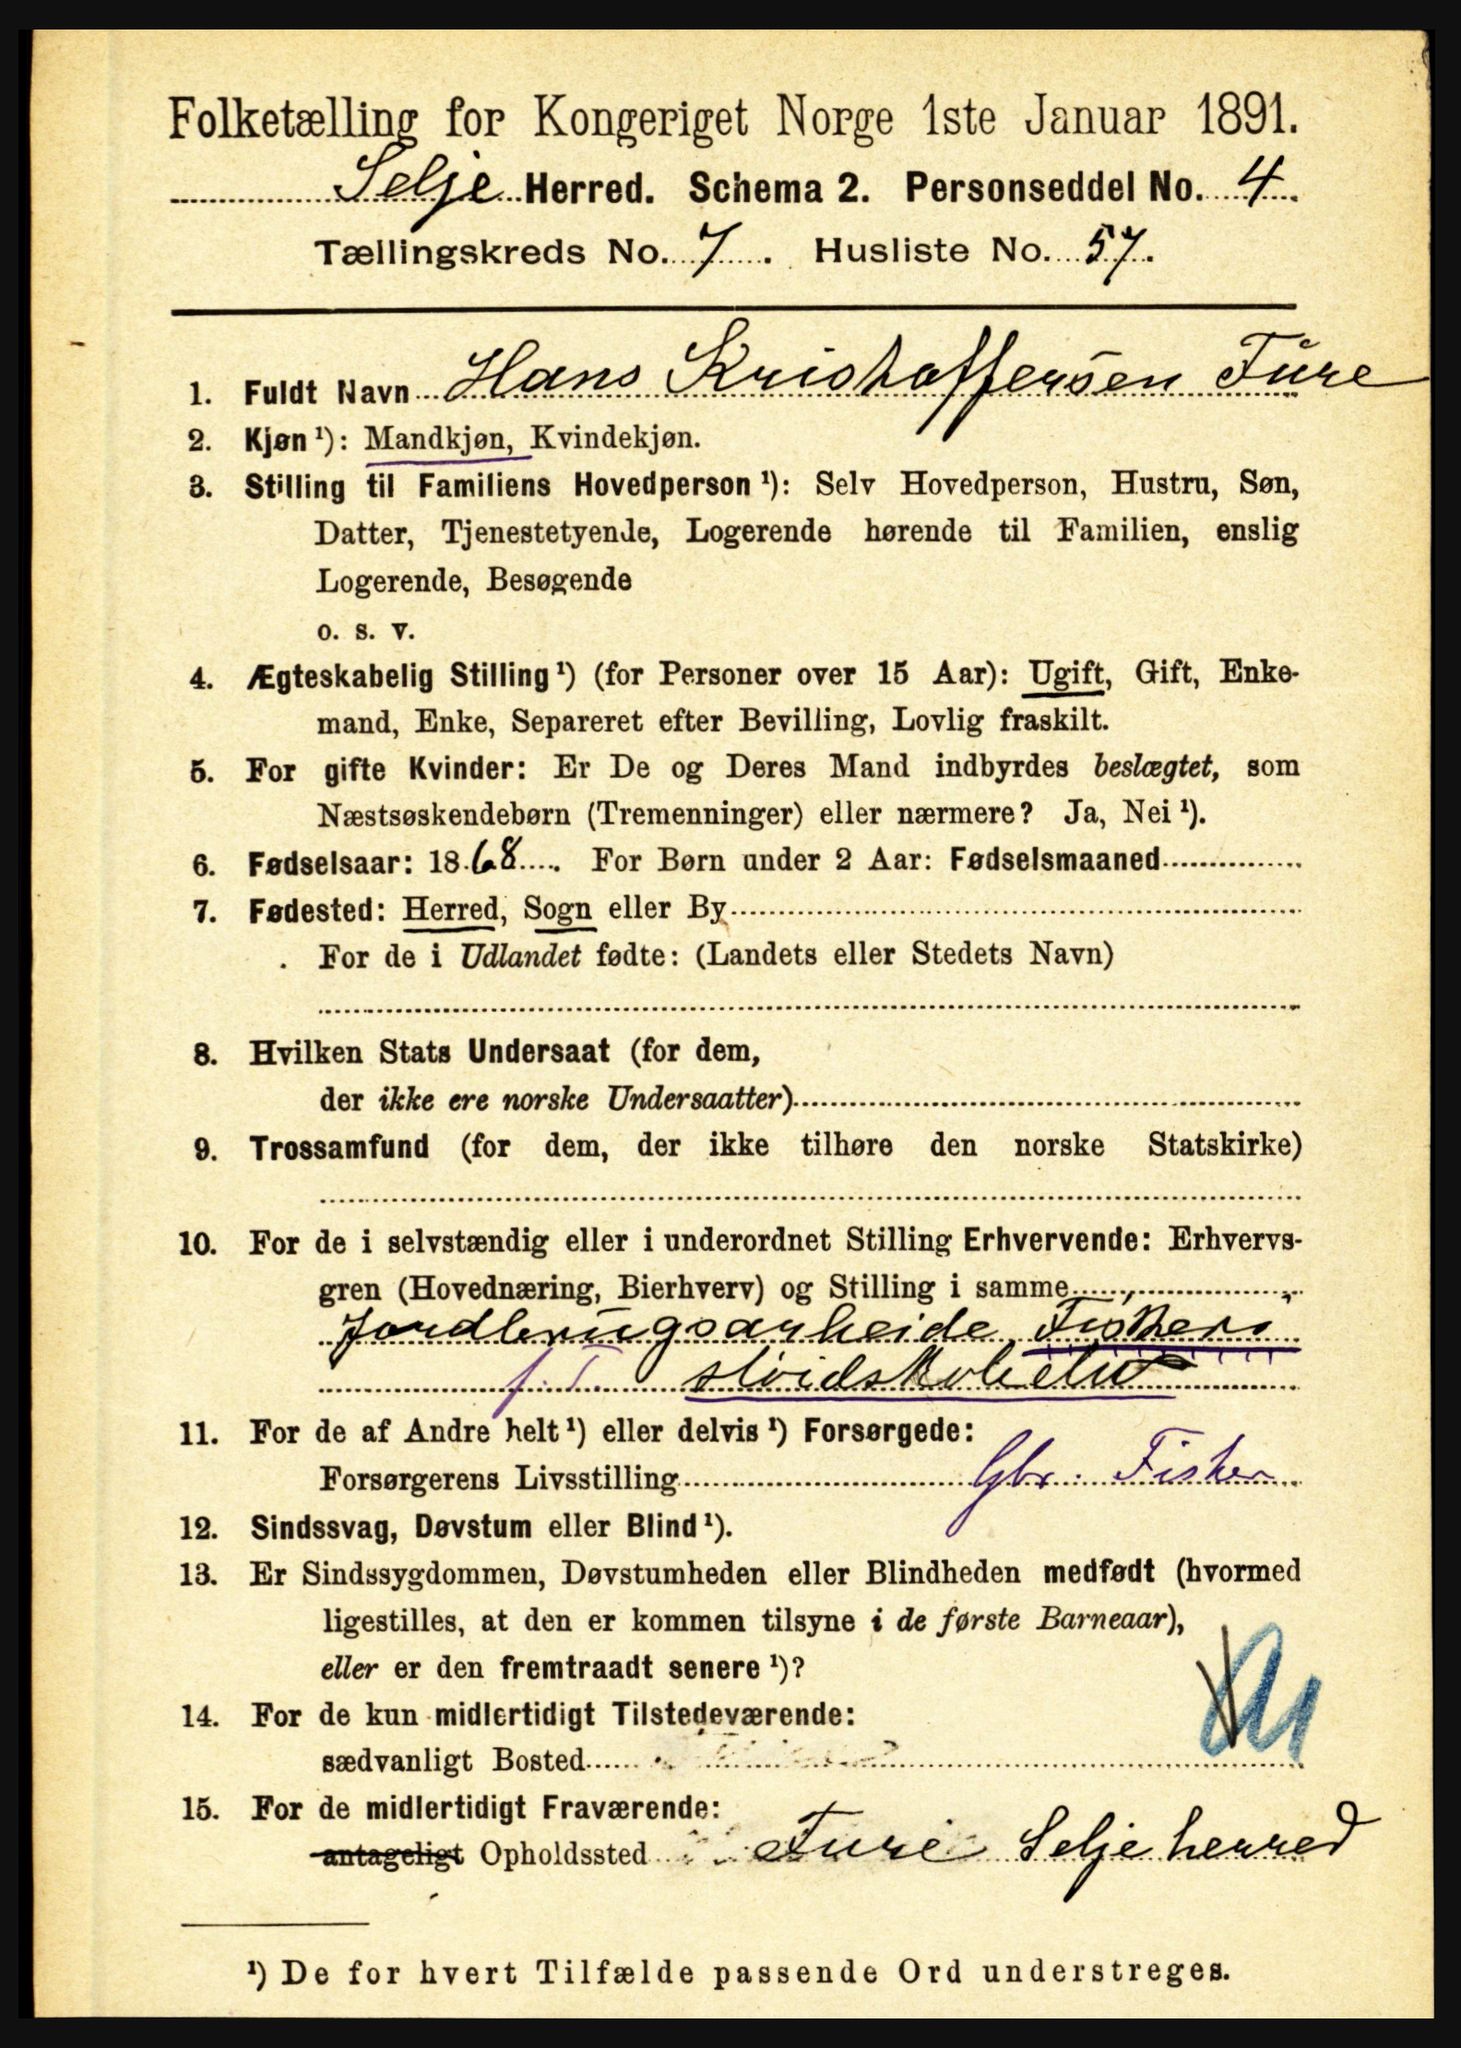 Folketælling for Kongeriget Norge 1ste Januar 1891.
Selje Herred. Schema 2. Personseddel No. 4.
Tællingskreds No. 7. Husliste No. 57.
1. Fuldt Navn Hans Kristoffersen Fure
2. Kjøn ¹): Mandkjøn, Kvindekjøn.
3. Stilling til Familiens Hovedperson ¹): Selv Hovedperson, Hustru, Søn,
Datter, Tjenestetyende, Logerende hørende til Familien, enslig
Logerende, Besøgende
o. s. v.
4. Ægteskabelig Stilling ¹) (for Personer over 15 Aar): Ugift, Gift, Enke-
mand, Enke, Separeret efter Bevilling, Lovlig fraskilt.
5. For gifte Kvinder: Er De og Deres Mand indbyrdes beslægtet, som
Næstsøskendebørn (Tremenninger) eller nærmere? Ja, Nei ¹).
6. Fødselsaar: 1868. For Børn under 2 Aar: Fødselsmaaned
7. Fødested: Herred, Sogn eller By
For de i Udlandet fødte: (Landets eller Stedets Navn)
8. Hvilken Stats Undersaat (for dem,
der ikke ere norske Undersaatter)
9. Trossamfund (for dem, der ikke tilhøre den norske Statskirke)
10. For de i selvstændig eller i underordnet Stilling Erhvervende: Erhvervs-
gren (Hovednæring, Bierhverv) og Stilling i samme
Jordbrugsarbeide, Fiskeri
f. T. sløidskoleelev
11. For de af Andre helt ¹) eller delvis ¹) Forsørgede:
Forsørgerens Livsstilling Gbr. Fisker
12. Sindssvag, Døvstum eller Blind ¹).
13. Er Sindssygdommen, Døvstumheden eller Blindheden medfødt (hvormed
ligestilles, at den er kommen tilsyne i de første Barneaar),
eller er den fremtraadt senere ¹)?
14. For de kun midlertidigt Tilstedeværende:
sædvanligt Bosted
15. For de midlertidigt Fraværende:
antageligt Opholdssted Fure Selje herred
¹) De for hvert Tilfælde passende Ord understreges.